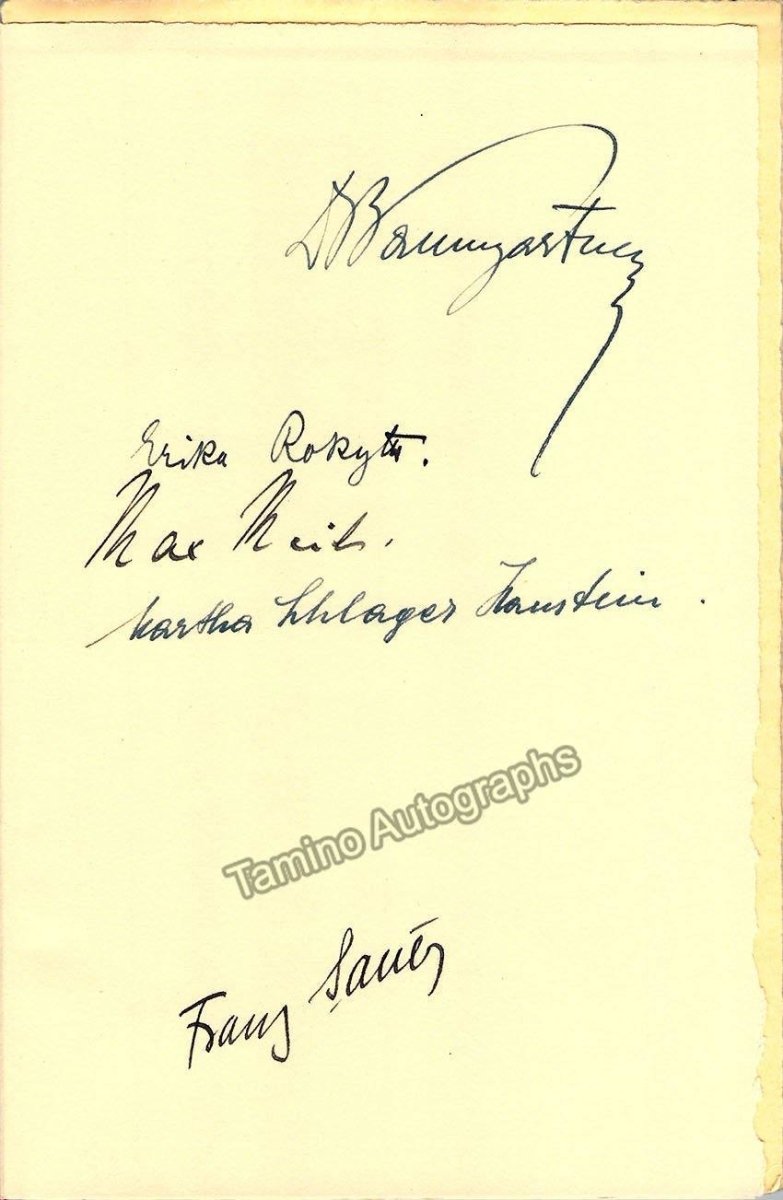 DBaumgartner
Erika Rokyta.
Max
Martha Schlager Haustein.
Tamino Autographs
Franz Sauer